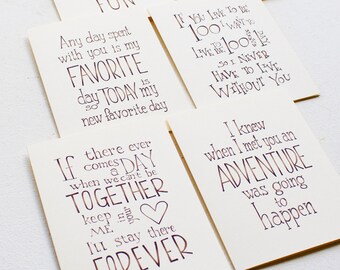 FUN
Any day spent
with you is my
FAVORITE
day so TODAY is my
new favorite day
If YOU LIVE TO BE
100 I WANT TO
LIVE TO BE 100
so I NEVER
HAVE TO LIVE
WITHOUT YOU
If there ever
comes a DAY
when we can't be
TOGETHER
keep ME in your
I'll stay there
FOREVER
I knew
when I met you an
ADVENTURE
was going
to happen